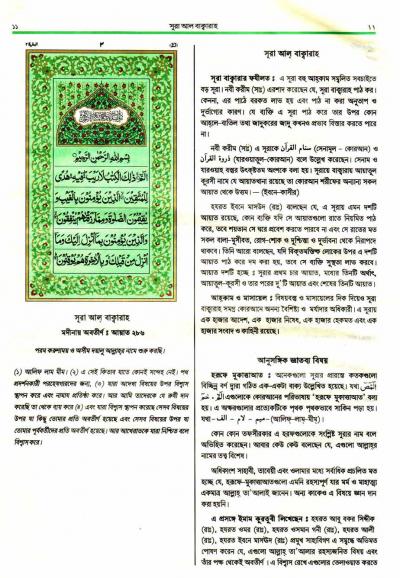 ১১
সূরা আল বাক্বারাহ
১১
সূরা আল্ বাক্বারাহ
মদীনায় অবতীর্ণ : আয়াত ২৮৬
পরম করুণাময় ও অসীম দয়ালু আল্লাহ্‌র নামে শুরু করছি।
(১) আলিফ লাম মীম। (২) এ সেই কিতাব যাতে কোনই সন্দেহ নেই। পথ
প্রদর্শনকারী পরহেযগারদের জন্য, (৩) যারা অদেখা বিষয়ের উপর বিশ্বাস
স্থাপন করে এবং নামায প্রতিষ্ঠা করে। আর আমি তাদেরকে যে রুযী দান
করেছি তা থেকে ব্যয় করে (৪) এবং যারা বিশ্বাস স্থাপন করেছে সেসব বিষয়ের
উপর যা কিছু তোমার প্রতি অবতীর্ণ হয়েছে এবং সেসব বিষয়ের উপর যা
তোমার পূর্ববর্তীদের প্রতি অবতীর্ণ হয়েছে। আর আখেরাতকে যারা নিশ্চিত বলে
বিশ্বাস করে।
সূরা আল্ বাক্বারাহ
সূরা বাক্বারার ফযীলত : এ সূরা বহু আহ্‌কাম সম্বলিত সবচাইতে
বড় সূরা। নবী করীম (সাঃ) এরশাদ করেছেন যে, সূরা বাক্বারাহ্ পাঠ কর।
কেননা, এর পাঠে বরকত লাভ হয় এবং পাঠ না করা অনুতাপ ও
দুর্ভাগ্যের কারণ। যে ব্যক্তি এ সূরা পাঠ করে তার উপর কোন
আহ্‌লে-বাতিল তথা জাদুকরের জাদু কখনও প্রভাব বিস্তার করতে পারে
না।
নবী করীম (সাঃ) এ সূরাকে سنام القرآن (সেনামুল – কোরআন) ও
ذروة القرآن (যারওয়াতুল-কোরআন) বলে উল্লেখ করেছেন। সেনাম ও
যারওয়াহ বস্তুর উৎকৃষ্টতম অংশকে বলা হয়। সূরায়ে বাক্বারায় আয়াতুল
কুরসী নামে যে আয়াতখানা রয়েছে তা কোরআন শরীফের অন্যান্য সকল
আয়াত থেকে উত্তম।— (ইবনে-কাসীর)
হযরত ইবনে মাসউদ (রাঃ) বলেছেন যে, এ সূরায় এমন দশটি
আয়াত রয়েছে, কোন ব্যক্তি যদি সে আয়াতগুলো রাতে নিয়মিত পাঠ
করে, তবে শয়তান সে ঘরে প্রবেশ করতে পারবে না এবং সে রাতের মত
সকল বালা-মুসীবত, রোগ-শোক ও দুশ্চিন্তা ও দুর্ভাবনা থেকে নিরাপদে
থাকবে। তিনি আরো বলেছেন, যদি বিকৃতমস্তিষ্ক লোকের উপর এ দশটি
আয়াত পাঠ করে দম করা হয়, তবে সে ব্যক্তি সুস্থতা লাভ করবে।
আয়াত দশটি হচ্ছে : সূরার প্রথম চার আয়াত, মধ্যের তিনটি অর্থাৎ,
আয়াতুল-কুরসী ও তার পরের দু'টি আয়াত এবং শেষের তিনটি আয়াত।
আহ্‌কাম ও মাসায়েল : বিষয়বস্তু ও মাসায়েলের দিক দিয়েও সূরা
বাক্বারাহ্ সমগ্র কোরআনে অনন্য বৈশিষ্ট্য ও মর্যাদার অধিকারী। এ সূরায়
এক হাজার আদেশ, এক হাজার নিষেধ, এক হাজার হেকমত এবং এক
হাজার সংবাদ ও কাহিনী রয়েছে।
আনুষঙ্গিক জ্ঞাতব্য বিষয়
হরূফে মুকাত্তাআত : অনেকগুলো সূরার প্রারম্ভে কতকগুলো
বিচ্ছিন্ন বর্ণ দ্বারা গঠিত এক-একটা বাক্য উল্লেখিত হয়েছে। যথা المص
এগুলোকে কোরআনের পরিভাষায় 'হরূফে মুকাত্তাআত' বলা
হয়। এ অক্ষরগুলোর প্রত্যেকটিকে পৃথক পৃথকভাবে সাকিন পড়া হয়।
যথা— الف – لام – ميم (আলিফ-লাম্-মীম্)।
কোন কোন তফসীরকার এ হরফগুলোকে সংশ্লিষ্ট সূরার নাম বলে
অভিহিত করেছেন। আবার কেউ কেউ বলেছেন যে, এগুলো আল্লাহ্‌র
নামের তত্ত্ব বিশেষ।
অধিকাংশ সাহাবী, তাবেয়ী এবং ওলামার মধ্যে সর্বাধিক প্রচলিত মত
হচ্ছে যে, হরূফে-মুকাত্তাআতগুলো এমনি রহস্যপূর্ণ যার মর্ম ও মাহাত্ম্য
একমাত্র আল্লাহ্ তা'আলাই জানেন। অন্য কাকেও এ বিষয়ে জ্ঞান দান
করা হয়নি।
এ প্রসঙ্গে ইমাম কুরতুবী লিখেছেন : হযরত আবু বকর সিদ্দীক
(রাঃ), হযরত ওমর (রাঃ), হযরত ওসমান গনী (রাঃ), হযরত আলী
(রাঃ), হযরত ইবনে মাসউদ (রাঃ) প্রমুখ সাহাবিগণ এ সম্বন্ধে অভিমত
পোষণ করেন যে, এগুলো আল্লাহ্ তা'আলার রহস্যজনিত বিষয় এবং
তাঁর পক্ষ থেকেই অবতীর্ণ। এ বিশ্বাস রেখে এগুলোর তেলাওয়াত করতে